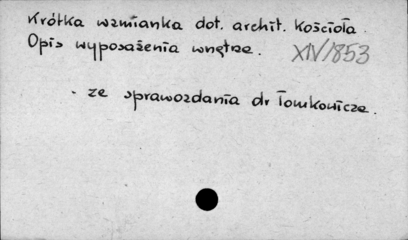 Krótka wzmianka dot. archit. Kościoła.
Opis wyposażenia wnętrza.
XIV/1853
- ze sprawozdania dr Tomkowicza.